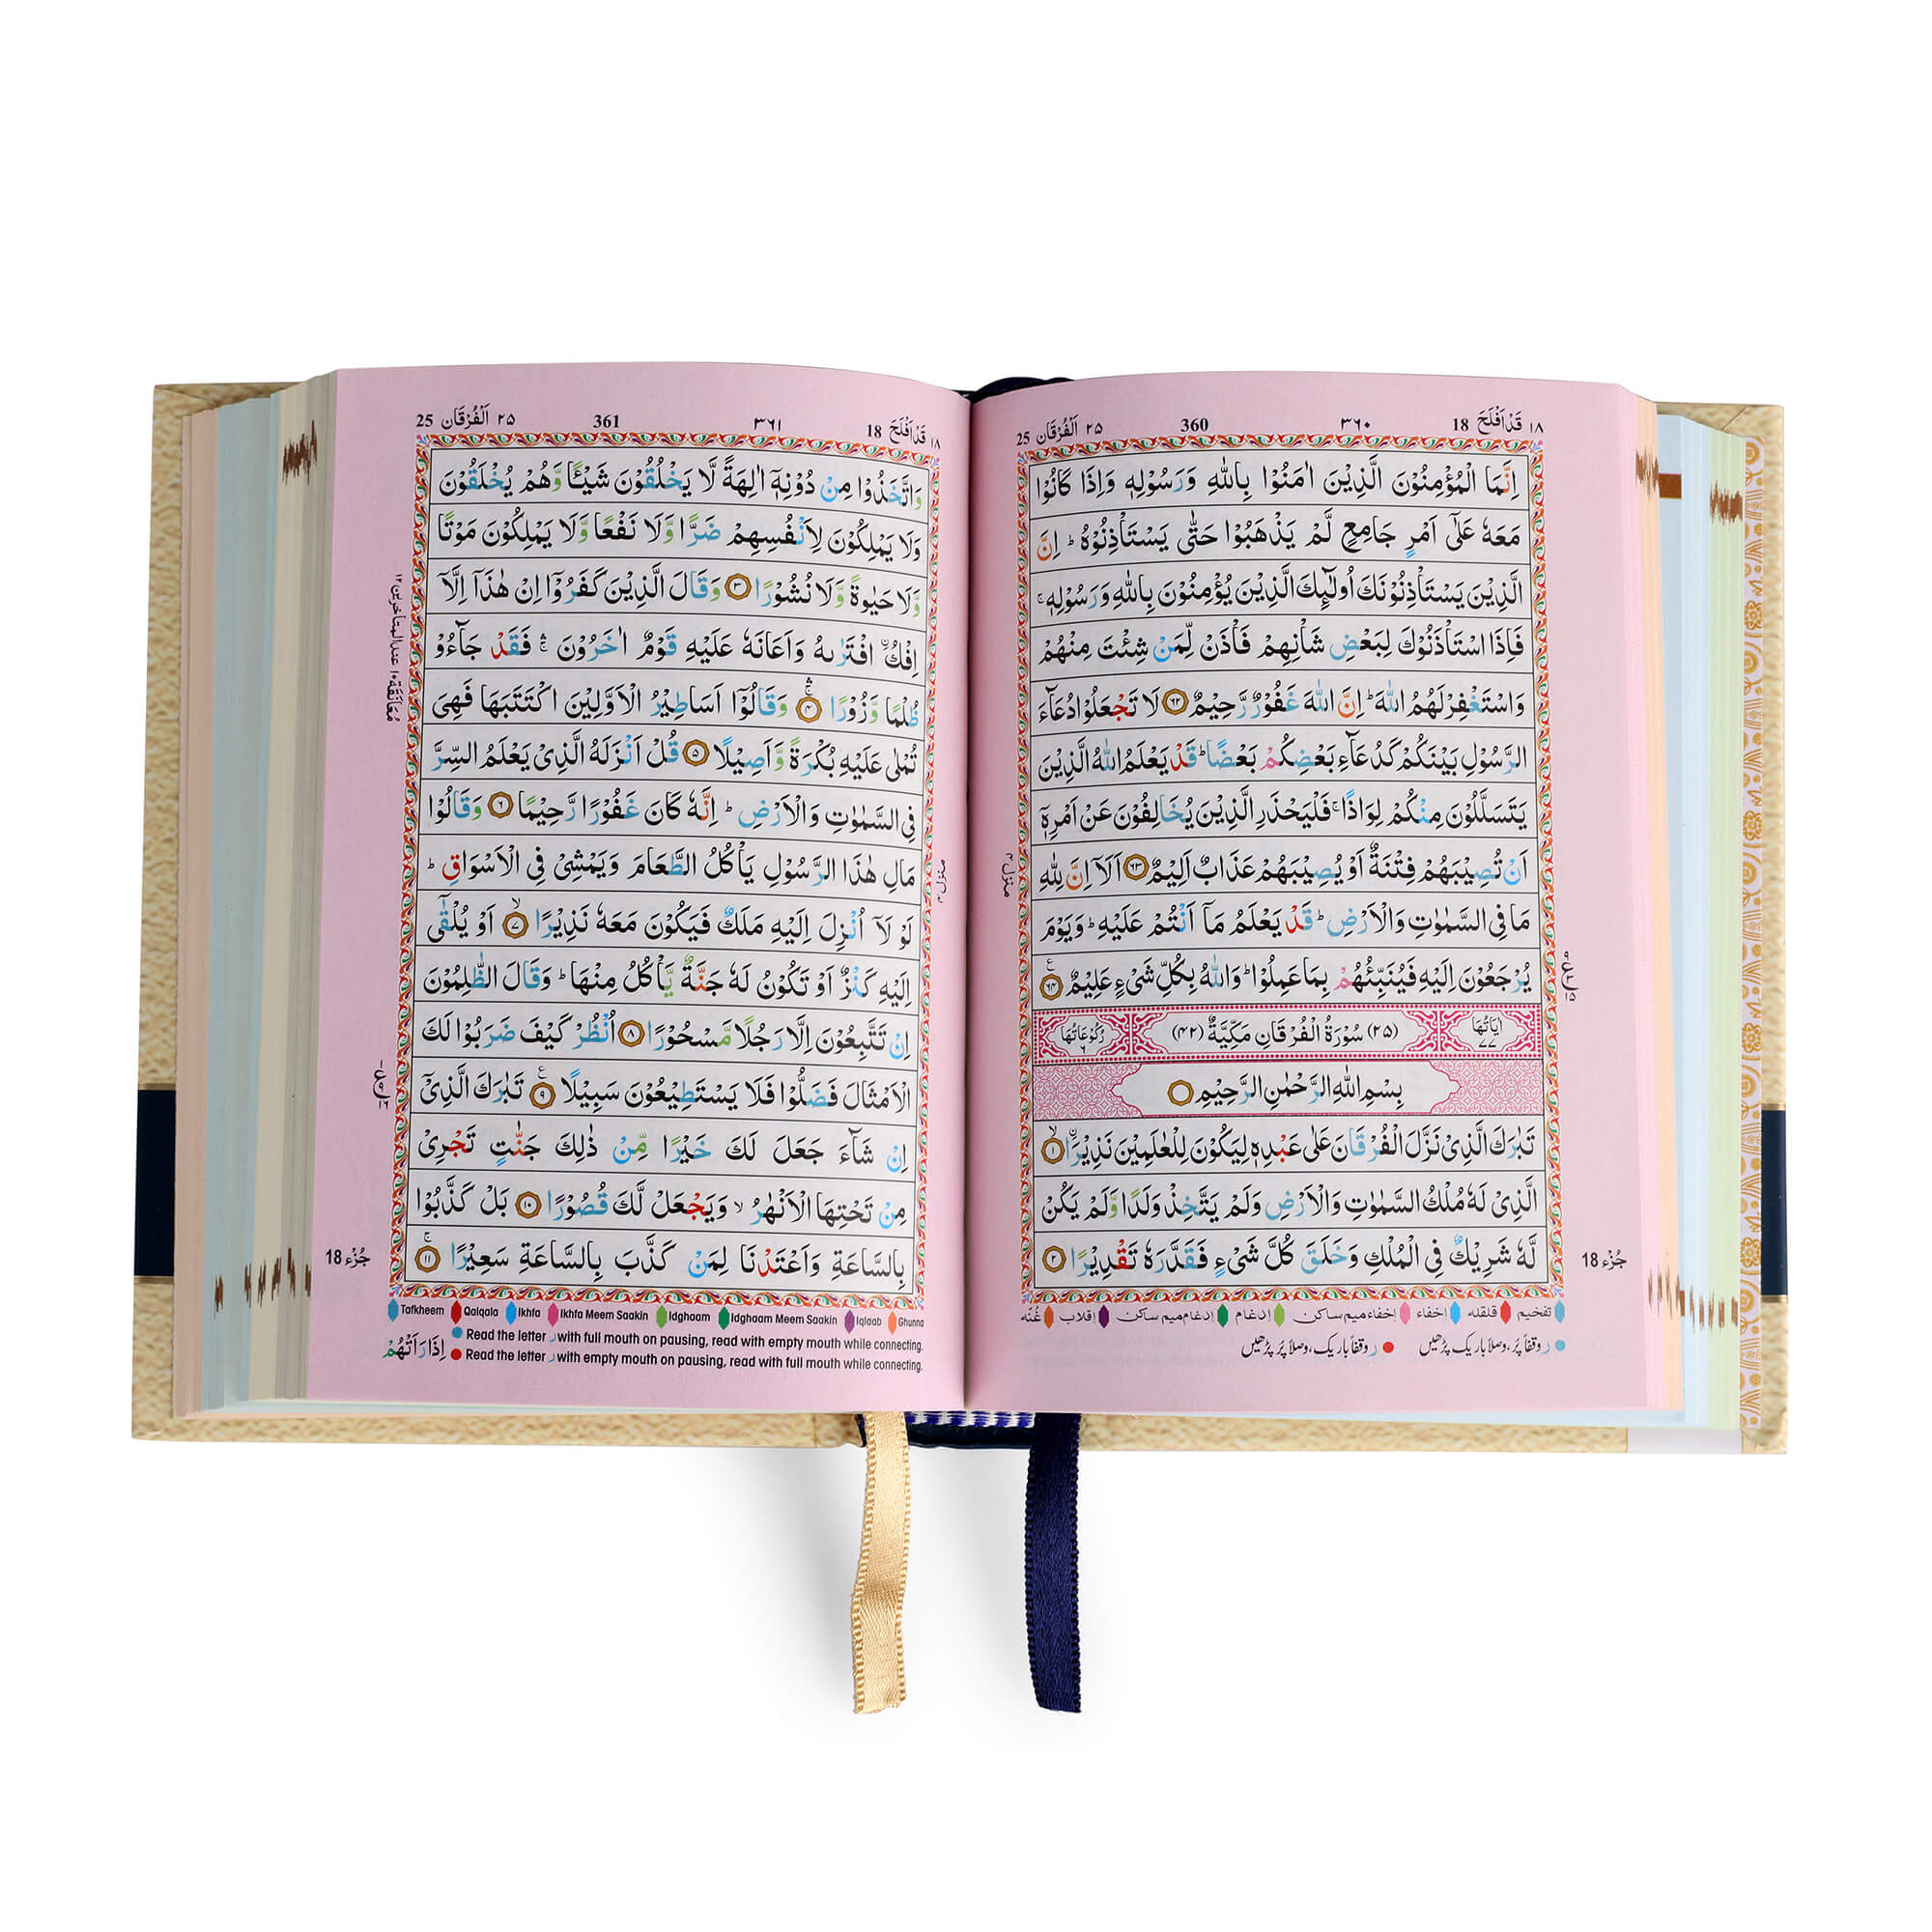 ١٨ قَدْ اَفْلَحَ 18 ٣٦٠ 360 ٢٥ اَلْفُرْقَان 25
اِنَّمَا الْمُؤْمِنُوْنَ الَّذِيْنَ اٰمَنُوْا بِاللّٰهِ وَرَسُوْلِهٖ وَاِذَا كَانُوْا
مَعَهٗ عَلٰٓى اَمْرٍ جَامِعٍ لَّمْ يَذْهَبُوْا حَتّٰى يَسْتَاْذِنُوْهُ ؕ اِنَّ
الَّذِيْنَ يَسْتَاْذِنُوْنَكَ اُولٰٓئِكَ الَّذِيْنَ يُؤْمِنُوْنَ بِاللّٰهِ وَرَسُوْلِهٖ ۚ
فَاِذَا اسْتَاْذَنُوْكَ لِبَعْضِ شَاْنِهِمْ فَاْذَنْ لِّمَنْ شِئْتَ مِنْهُمْ
وَاسْتَغْفِرْ لَهُمُ اللّٰهَ ؕ اِنَّ اللّٰهَ غَفُوْرٌ رَّحِيْمٌ ٦٢ لَا تَجْعَلُوْا دُعَآءَ
الرَّسُوْلِ بَيْنَكُمْ كَدُعَآءِ بَعْضِكُمْ بَعْضًا ؕ قَدْ يَعْلَمُ اللّٰهُ الَّذِيْنَ
يَتَسَلَّلُوْنَ مِنْكُمْ لِوَاذًا ۚ فَلْيَحْذَرِ الَّذِيْنَ يُخَالِفُوْنَ عَنْ اَمْرِهٖٓ
اَنْ تُصِيْبَهُمْ فِتْنَةٌ اَوْ يُصِيْبَهُمْ عَذَابٌ اَلِيْمٌ ٦٣ اَلَآ اِنَّ لِلّٰهِ
مَا فِى السَّمٰوٰتِ وَالْاَرْضِ ؕ قَدْ يَعْلَمُ مَآ اَنْتُمْ عَلَيْهِ ؕ وَيَوْمَ
يُرْجَعُوْنَ اِلَيْهِ فَيُنَبِّئُهُمْ بِمَا عَمِلُوْا ؕ وَاللّٰهُ بِكُلِّ شَىْءٍ عَلِيْمٌ ٦٤
اٰيَاتُهَا ٧٧ (٢٥) سُوْرَةُ الْفُرْقَانِ مَكِّيَّةٌ (٤٢) رُكُوْعَاتُهَا ٦
بِسْمِ اللّٰهِ الرَّحْمٰنِ الرَّحِيْمِ
تَبٰرَكَ الَّذِىْ نَزَّلَ الْفُرْقَانَ عَلٰى عَبْدِهٖ لِيَكُوْنَ لِلْعٰلَمِيْنَ نَذِيْرًا ١
الَّذِىْ لَهٗ مُلْكُ السَّمٰوٰتِ وَالْاَرْضِ وَلَمْ يَتَّخِذْ وَلَدًا وَّلَمْ يَكُنْ
لَّهٗ شَرِيْكٌ فِى الْمُلْكِ وَخَلَقَ كُلَّ شَىْءٍ فَقَدَّرَهٗ تَقْدِيْرًا ٢
جُزْء 18
منزل ٤
تفخيم قلقله اِخفاء اِخفاء ميم ساكن اِدغام اِدغام ميم ساكن اِقلاب غُنّه
ر وقفاً پُر، وصلاً باریک پڑھیں ر وقفاً باریک، وصلاً پُر پڑھیں
١٨ قَدْ اَفْلَحَ 18 ٣٦١ 361 ٢٥ اَلْفُرْقَان 25
وَاتَّخَذُوْا مِنْ دُوْنِهٖٓ اٰلِهَةً لَّا يَخْلُقُوْنَ شَيْـًٔا وَّهُمْ يُخْلَقُوْنَ
وَلَا يَمْلِكُوْنَ لِاَنْفُسِهِمْ ضَرًّا وَّلَا نَفْعًا وَّلَا يَمْلِكُوْنَ مَوْتًا
وَّلَا حَيٰوةً وَّلَا نُشُوْرًا ٣ وَقَالَ الَّذِيْنَ كَفَرُوْٓا اِنْ هٰذَآ اِلَّآ
اِفْكٌ افْتَرٰىهُ وَاَعَانَهٗ عَلَيْهِ قَوْمٌ اٰخَرُوْنَ ۛۚ فَقَدْ جَآءُوْ
ظُلْمًا وَّزُوْرًا ۛۚ ٤ وَقَالُوْٓا اَسَاطِيْرُ الْاَوَّلِيْنَ اكْتَتَبَهَا فَهِىَ
تُمْلٰى عَلَيْهِ بُكْرَةً وَّاَصِيْلًا ٥ قُلْ اَنْزَلَهُ الَّذِىْ يَعْلَمُ السِّرَّ
فِى السَّمٰوٰتِ وَالْاَرْضِ ؕ اِنَّهٗ كَانَ غَفُوْرًا رَّحِيْمًا ٦ وَقَالُوْا
مَالِ هٰذَا الرَّسُوْلِ يَاْكُلُ الطَّعَامَ وَيَمْشِىْ فِى الْاَسْوَاقِ ؕ
لَوْ لَآ اُنْزِلَ اِلَيْهِ مَلَكٌ فَيَكُوْنَ مَعَهٗ نَذِيْرًا ۙ ٧ اَوْ يُلْقٰٓى
اِلَيْهِ كَنْزٌ اَوْ تَكُوْنُ لَهٗ جَنَّةٌ يَّاْكُلُ مِنْهَا ؕ وَقَالَ الظّٰلِمُوْنَ
اِنْ تَتَّبِعُوْنَ اِلَّا رَجُلًا مَّسْحُوْرًا ٨ اُنْظُرْ كَيْفَ ضَرَبُوْا لَكَ
الْاَمْثَالَ فَضَلُّوْا فَلَا يَسْتَطِيْعُوْنَ سَبِيْلًا ٩ تَبٰرَكَ الَّذِىْٓ
اِنْ شَآءَ جَعَلَ لَكَ خَيْرًا مِّنْ ذٰلِكَ جَنّٰتٍ تَجْرِىْ
مِنْ تَحْتِهَا الْاَنْهٰرُ ۙ وَيَجْعَلْ لَّكَ قُصُوْرًا ١٠ بَلْ كَذَّبُوْا
بِالسَّاعَةِ وَاَعْتَدْنَا لِمَنْ كَذَّبَ بِالسَّاعَةِ سَعِيْرًا ۚ ١١
جُزْء 18
Tafkheem Qalqala Ikhfa Ikhfa Meem Saakin Idghaam Idghaam Meem Saakin Iqlaab Ghunna
Read the letter ر with full mouth on pausing, read with empty mouth while connecting.
Read the letter ر with empty mouth on pausing, read with full mouth while connecting.
اِذَا رَاَتْهُمْ